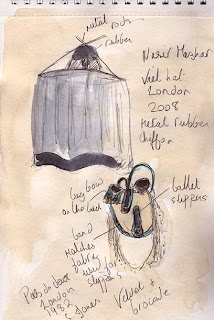 metal rods
rubber
Nasir Mazhar
Veil hat
London
2008
Metal rubber
chiffon
big bow
on the back
ballet
slippers
band
matches
fabric
used for
slippers
Pas de deux
London
1982
Jones
Velvet &
brocade